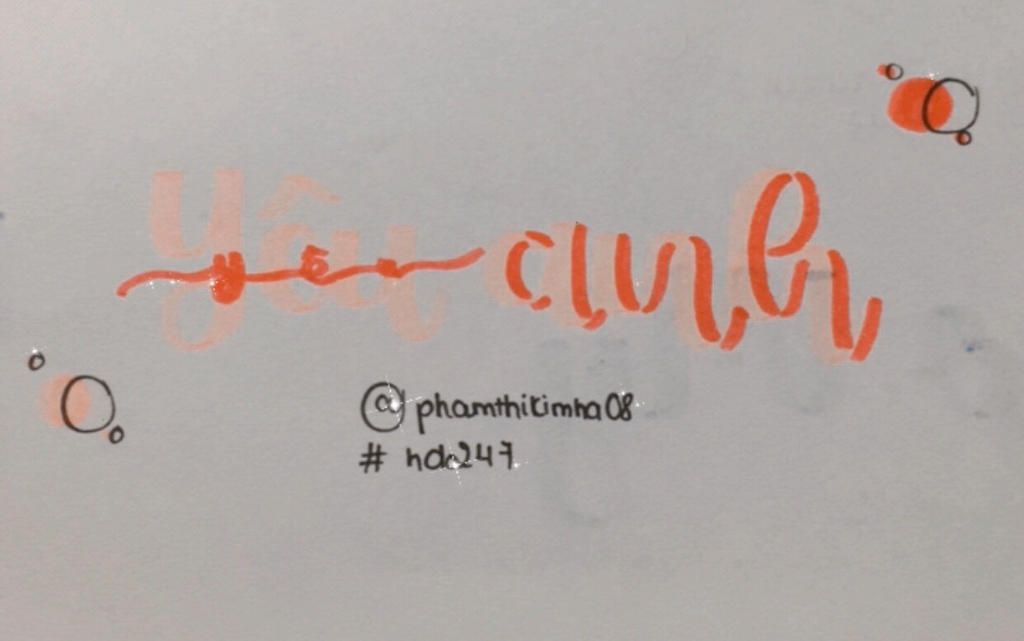 yêu anh
@phamthikimha08
# hdc247